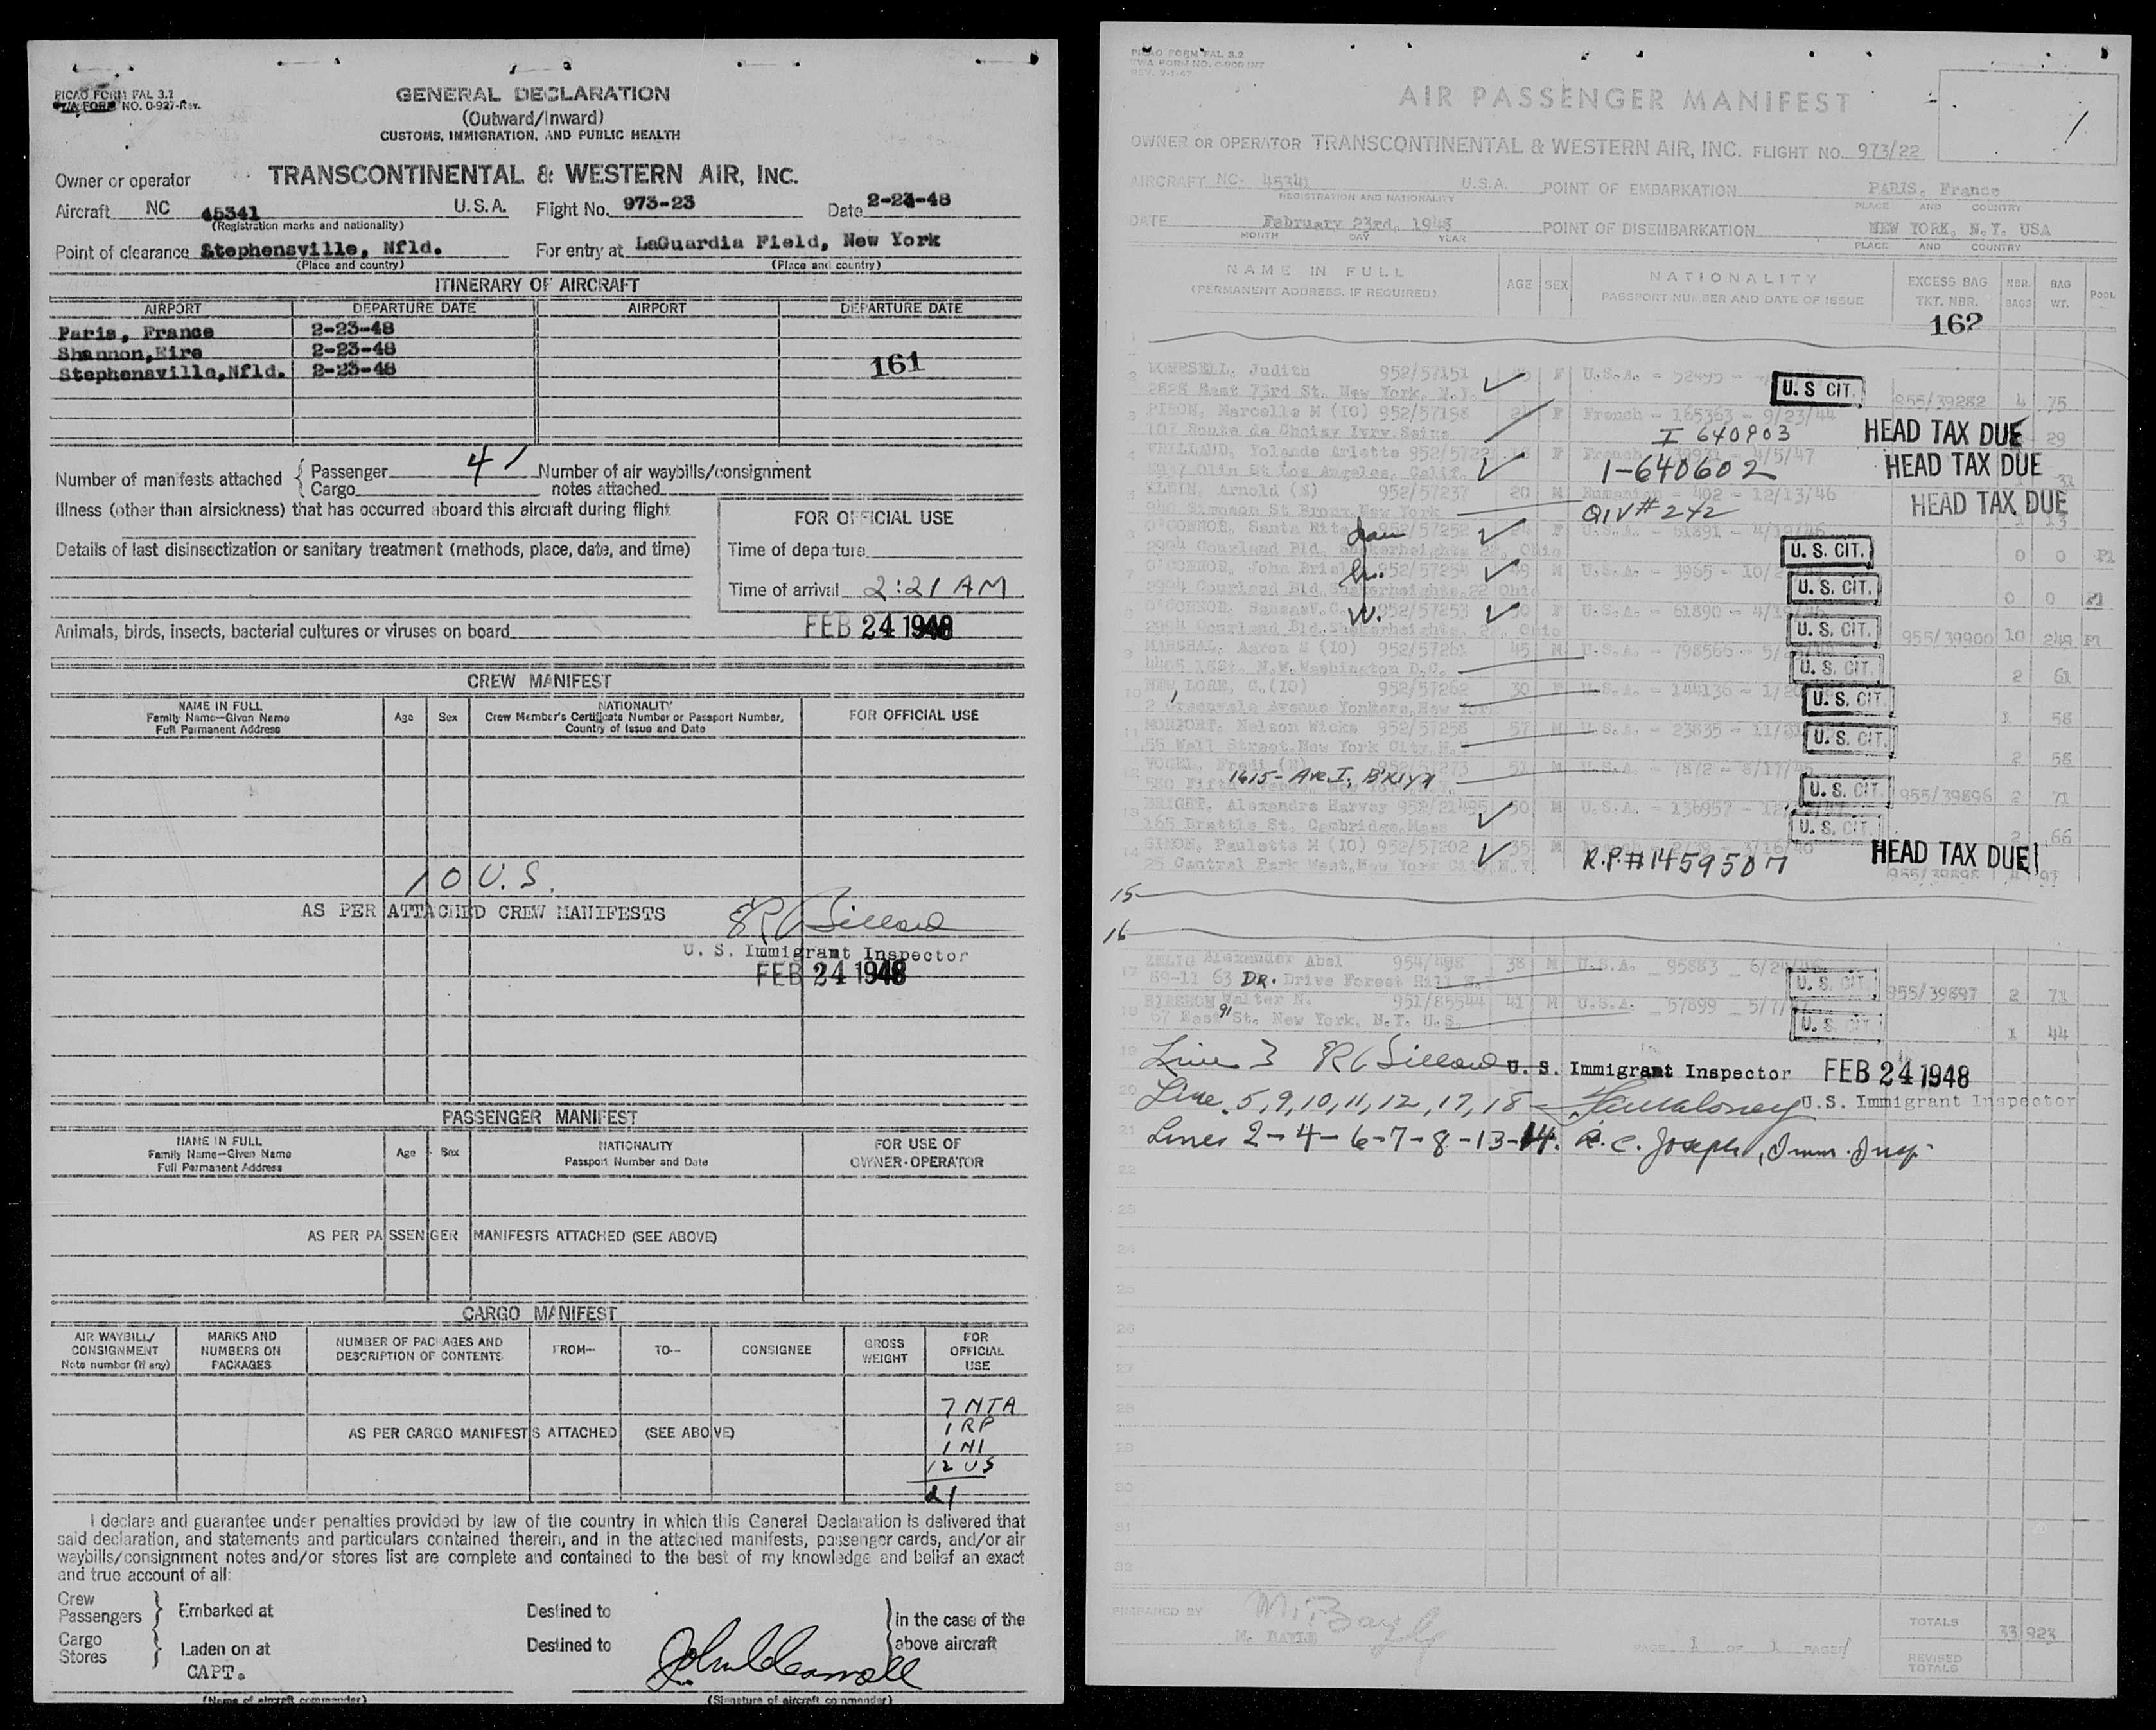 PICAO FORM FAL 3.1
TWA FORM NO. 0-927-Rev.
GENERAL DECLARATION
(Outward/Inward)
CUSTOMS, IMMIGRATION, AND PUBLIC HEALTH
Owner or operator TRANSCONTINENTAL & WESTERN AIR, INC.
Aircraft NC 45341 U.S.A. Flight No. 973-23 Date 2-24-48
(Registration marks and nationality)
Point of clearance Stephensville, Nfld. For entry at LaGuardia Field, New York
(Place and country) (Place and country)
ITINERARY OF AIRCRAFT
AIRPORT DEPARTURE DATE AIRPORT DEPARTURE DATE
Paris, France 2-23-48
Shannon,Eire 2-23-48
Stephensville,Nfld. 2-23-48 161
Number of manifests attached { Passenger 4 1 Number of air waybills/consignment
Cargo notes attached
Illness (other than airsickness) that has occurred aboard this aircraft during flight
Details of last disinsectization or sanitary treatment (methods, place, date, and time)
FOR OFFICIAL USE
Time of departure
Time of arrival 2:21 AM
Animals, birds, insects, bacterial cultures or viruses on board FEB 24 1948
CREW MANIFEST
NAME IN FULL
Family Name—Given Name
Full Permanent Address
Age Sex
NATIONALITY
Crew Member's Certificate Number or Passport Number,
Country of Issue and Date
FOR OFFICIAL USE
10 U.S.
AS PER ATTACHED CREW MANIFESTS
U. S. Immigrant Inspector
FEB 24 1948
PASSENGER MANIFEST
NAME IN FULL
Family Name—Given Name
Full Permanent Address
Age Sex
NATIONALITY
Passport Number and Date
FOR USE OF
OWNER-OPERATOR
AS PER PASSENGER MANIFESTS ATTACHED (SEE ABOVE)
CARGO MANIFEST
AIR WAYBILL/
CONSIGNMENT
Note number (if any)
MARKS AND
NUMBERS ON
PACKAGES
NUMBER OF PACKAGES AND
DESCRIPTION OF CONTENTS
FROM— TO— CONSIGNEE
GROSS
WEIGHT
FOR
OFFICIAL
USE
7 NTA
AS PER CARGO MANIFESTS ATTACHED (SEE ABOVE) 1 RP
1 NI
12 US
21
I declare and guarantee under penalties provided by law of the country in which this General Declaration is delivered that
said declaration, and statements and particulars contained therein, and in the attached manifests, passenger cards, and/or air
waybills/consignment notes and/or stores list are complete and contained to the best of my knowledge and belief an exact
and true account of all:
Crew
Passengers } Embarked at Destined to
Cargo
Stores } Laden on at Destined to
In the case of the
above aircraft
CAPT.
(Name of aircraft commander) (Signature of aircraft commander)
PICAO FORM FAL 3.2
TWA FORM NO. 0-900 INT
REV. 7-1-47
AIR PASSENGER MANIFEST
1
OWNER OR OPERATOR TRANSCONTINENTAL & WESTERN AIR, INC. FLIGHT NO. 973/22
AIRCRAFT NC- 45341 U.S.A. POINT OF EMBARKATION PARIS, France
REGISTRATION AND NATIONALITY PLACE AND COUNTRY
DATE February 23rd, 1948 POINT OF DISEMBARKATION NEW YORK, N.Y. USA
MONTH DAY YEAR PLACE AND COUNTRY
NAME IN FULL
(PERMANENT ADDRESS, IF REQUIRED)
AGE SEX
NATIONALITY
PASSPORT NUMBER AND DATE OF ISSUE
EXCESS BAG
TKT. NBR.
NBR.
BAGS
BAG
WT.
POOL
162
2 Judith 952/57151 F U.S.A. - 52495 U. S CIT.
2828 East 73rd St. New York, N.Y. 955/39282 4 75
3 PIRON, Marcelle M (IO) 952/57198 F French - 165363 - 9/23/44
107 Route de Choisy Ivry.Seine I 640903 HEAD TAX DUE 29
4 Yolande Arlette 952/5722 F French 39931 4/5/47
Olin St Los Angeles, Calif. 1-640602 HEAD TAX DUE 31
5 KLEIN, Arnold (S) 952/57237 20 M Rumanian - 402 - 12/13/46
940 Simpson St Bronx New York QIV # 242 HEAD TAX DUE 1 13
6 O'CONNOR, Santa Rita 952/57252 24 F U.S.A. - 61891 - 4/19/46
2994 Courland Bld. Shakerheights 22, Ohio U. S. CIT. 0 0 P1
7 O'CONNOR, John Brial 952/57254 49 M U.S.A. - 3965 - 10/2
2994 Courland Bld Shakerheights,22 Ohio U. S. CIT. 0 0 P1
8 O'CONNOR, W. 952/57253 50 F U.S.A. - 61890 - 4/19/46
2994 Courland Bld. Shakerheights, 2, Ohio U. S. CIT. 955/39900 10 249 P1
9 MARSHAL, Aaron S (IO) 952/57261 45 M U.S.A. - 798566 - 5/
4405 18St. N.W. Washington D.C. U. S. CIT. 2 61
10 NEW LORE, C.(IO) 952/57262 30 F U.S.A. - 144136 - 1/20
2 Greenvale Avenue Yonkers, New York U. S. CIT. 1 58
11 MONFORT, Nelson Wicks 952/57258 57 M U.S.A. - 23835 - 11/
55 Wall Street New York City, N. U. S. CIT. 2 58
12 VOGEL, Fredi (N) 952/57273 51 M U.S.A. - 7872 - 8/17/45
1615- Ave I, B'klyn
580 Fifth Avenue, New York U. S. CIT. 955/39896 2 71
13 BRIGHT, Alexandre Harvey 952/21495 50 M U.S.A. - 136957 - 12
165 Brattle St. Cambridge, Mass U. S. CIT. 2 66
14 SIMON, Paulette M (IO) 952/57202 35 M 3/16/46
25 Central Park West, New York City, N.Y. R.P.# 1459507 HEAD TAX DUE 955/39898 4 97
15
16
17 ZELIG Alexander Abel 954/498 38 M U.S.A. _ 95883 _ 6/24/46
89-11 63 DR. Drive Forest Hill U. S. CIT. 955/39897 2 71
18 HIRSHON Walter N. 951/85544 41 M U.S.A. _ 57899 _ 5/7/
67 East 91 St. New York, N.Y. U.S. U. S. CIT. 1 44
19 Line 3 U. S. Immigrant Inspector FEB 24 1948
20 Line 5,9,10,11,12,17,18 - U.S. Immigrant Inspector
21 Lines 2-4-6-7-8-13-14. R. C. Joseph, Imm. Insp.
22
23
24
25
26
27
28
29
30
31
32
PREPARED BY M. BAYLE PAGE 1 OF 1 PAGES
TOTALS 33 923
REVISED
TOTALS